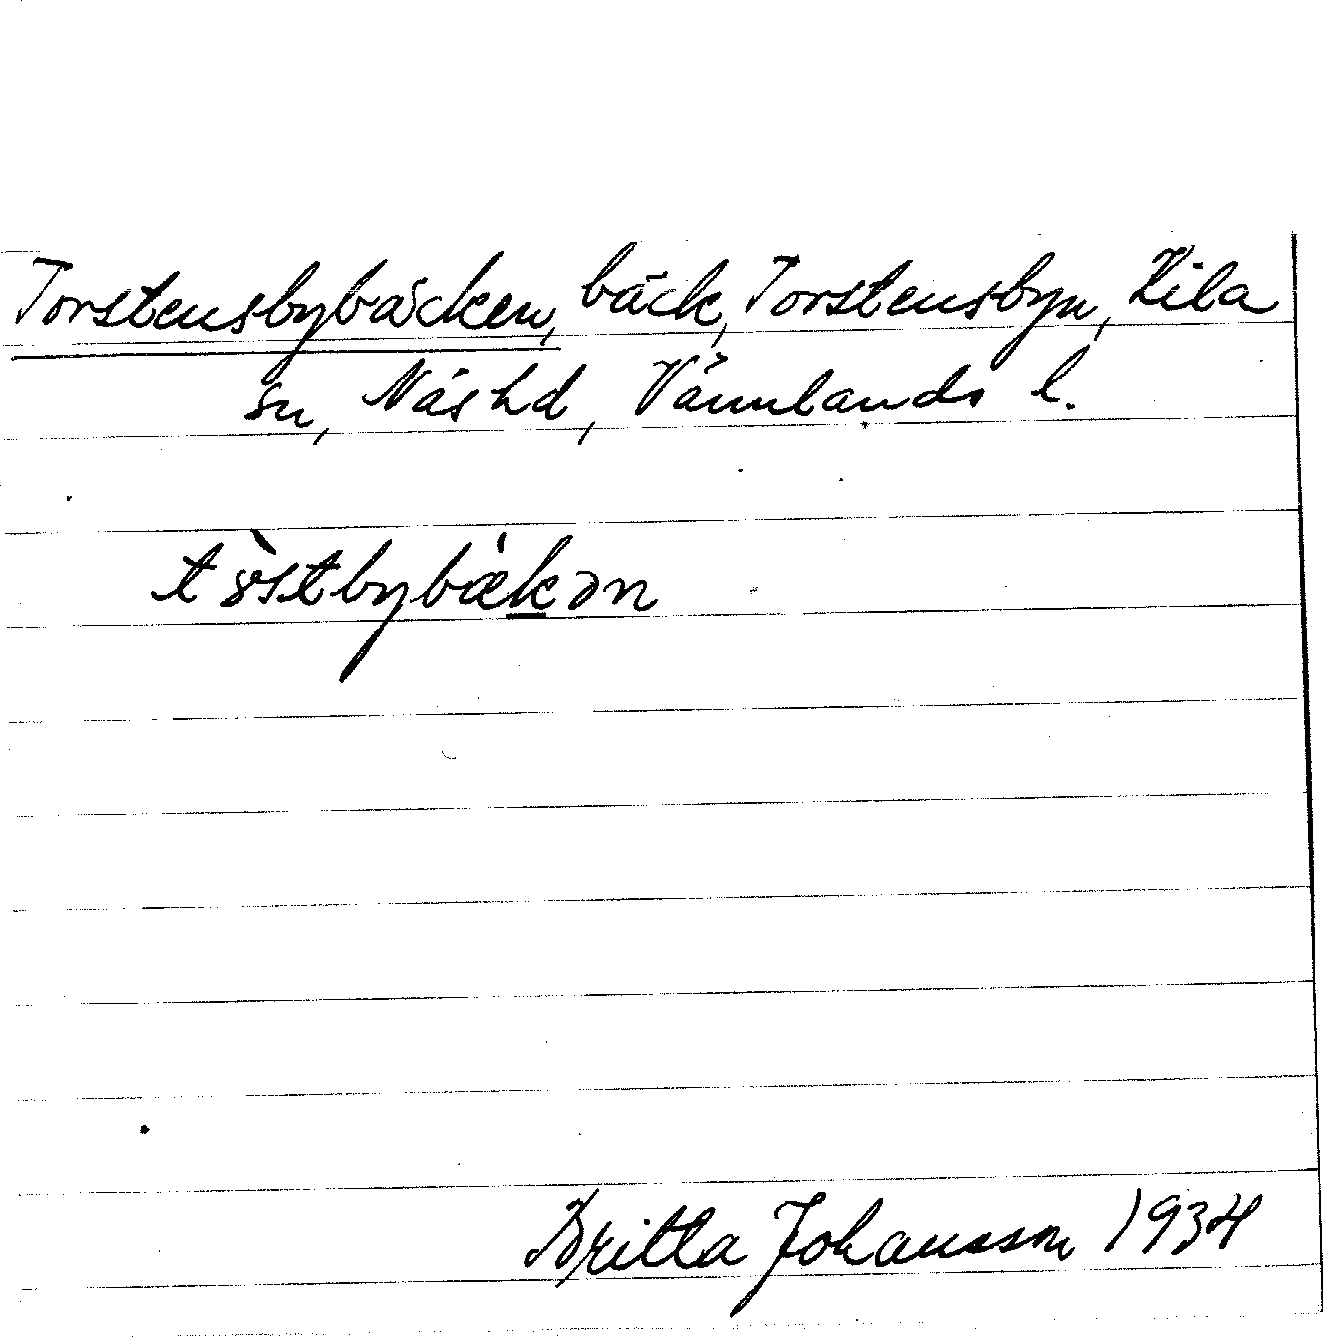 Torstensbybäcken, bäck, Torstensbyn, Kila
sn, Näs hd, Värmlands l.
tö̀stbybǽkən
Britta Johansson 1934